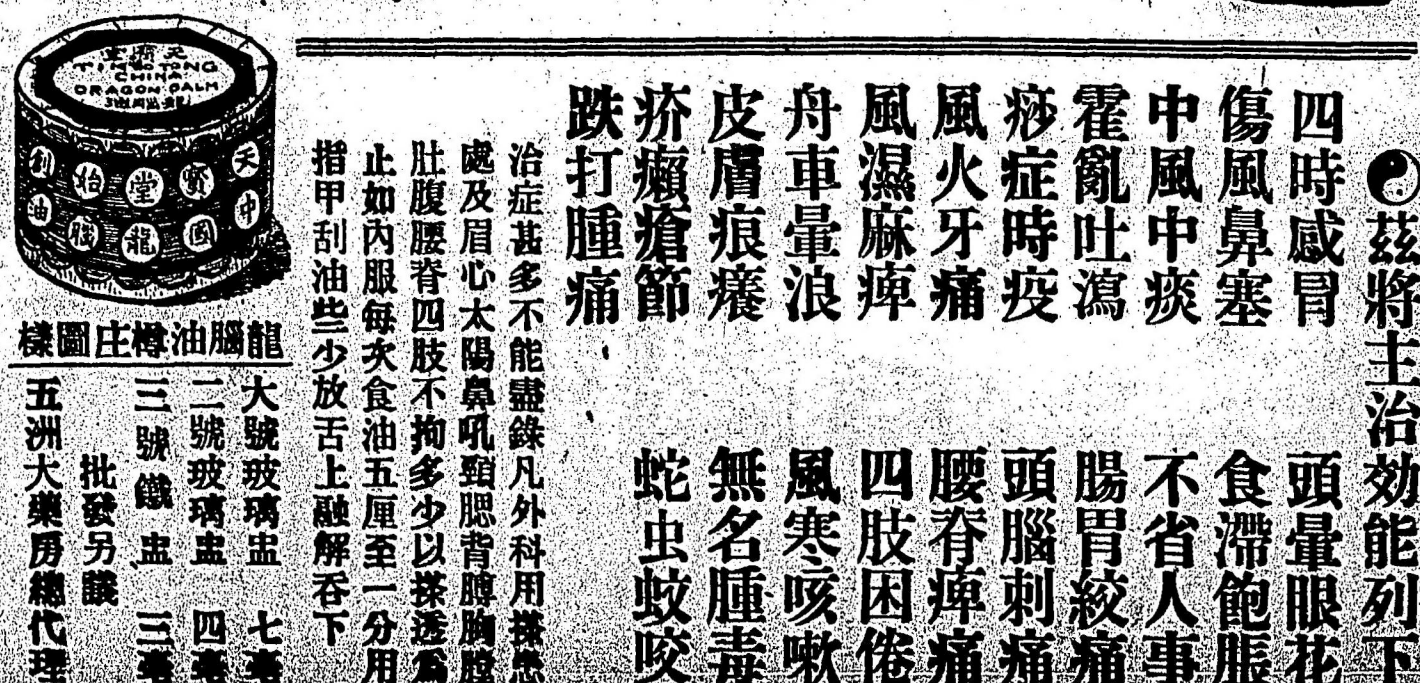 茲將主治効能列下
四時感冒 頭暈眼花
傷風鼻塞 食滯飽脹
中風中痰 不省人事
霍亂吐瀉 腸胃絞痛
痧症時疫 頭腦刺痛
風火牙痛 腰脊痺痛
風濕麻痺 四肢困倦
舟車暈浪 風寒咳嗽
皮膚痕癢 無名腫毒
疥癩瘡節 蛇虫蚊咬
跌打腫痛
治症甚多不能盡錄凡外科用搽患
處及眉心太陽鼻吼頸腮背膊胸膛
肚腹腰脊四肢不拘多少以搽透為
止如內服每次食油五厘至一分用
指甲刮油些少放舌上融解吞下
天賢堂
TONG
CHINA
DRAGON PALM
天賢堂始創
中國龍腦油
龍腦油樽庄圖樣
大號玻璃盅 七毫
二號玻璃盅 四毫
三號鐵盅 三毫
批發另議
五洲大藥房總代理